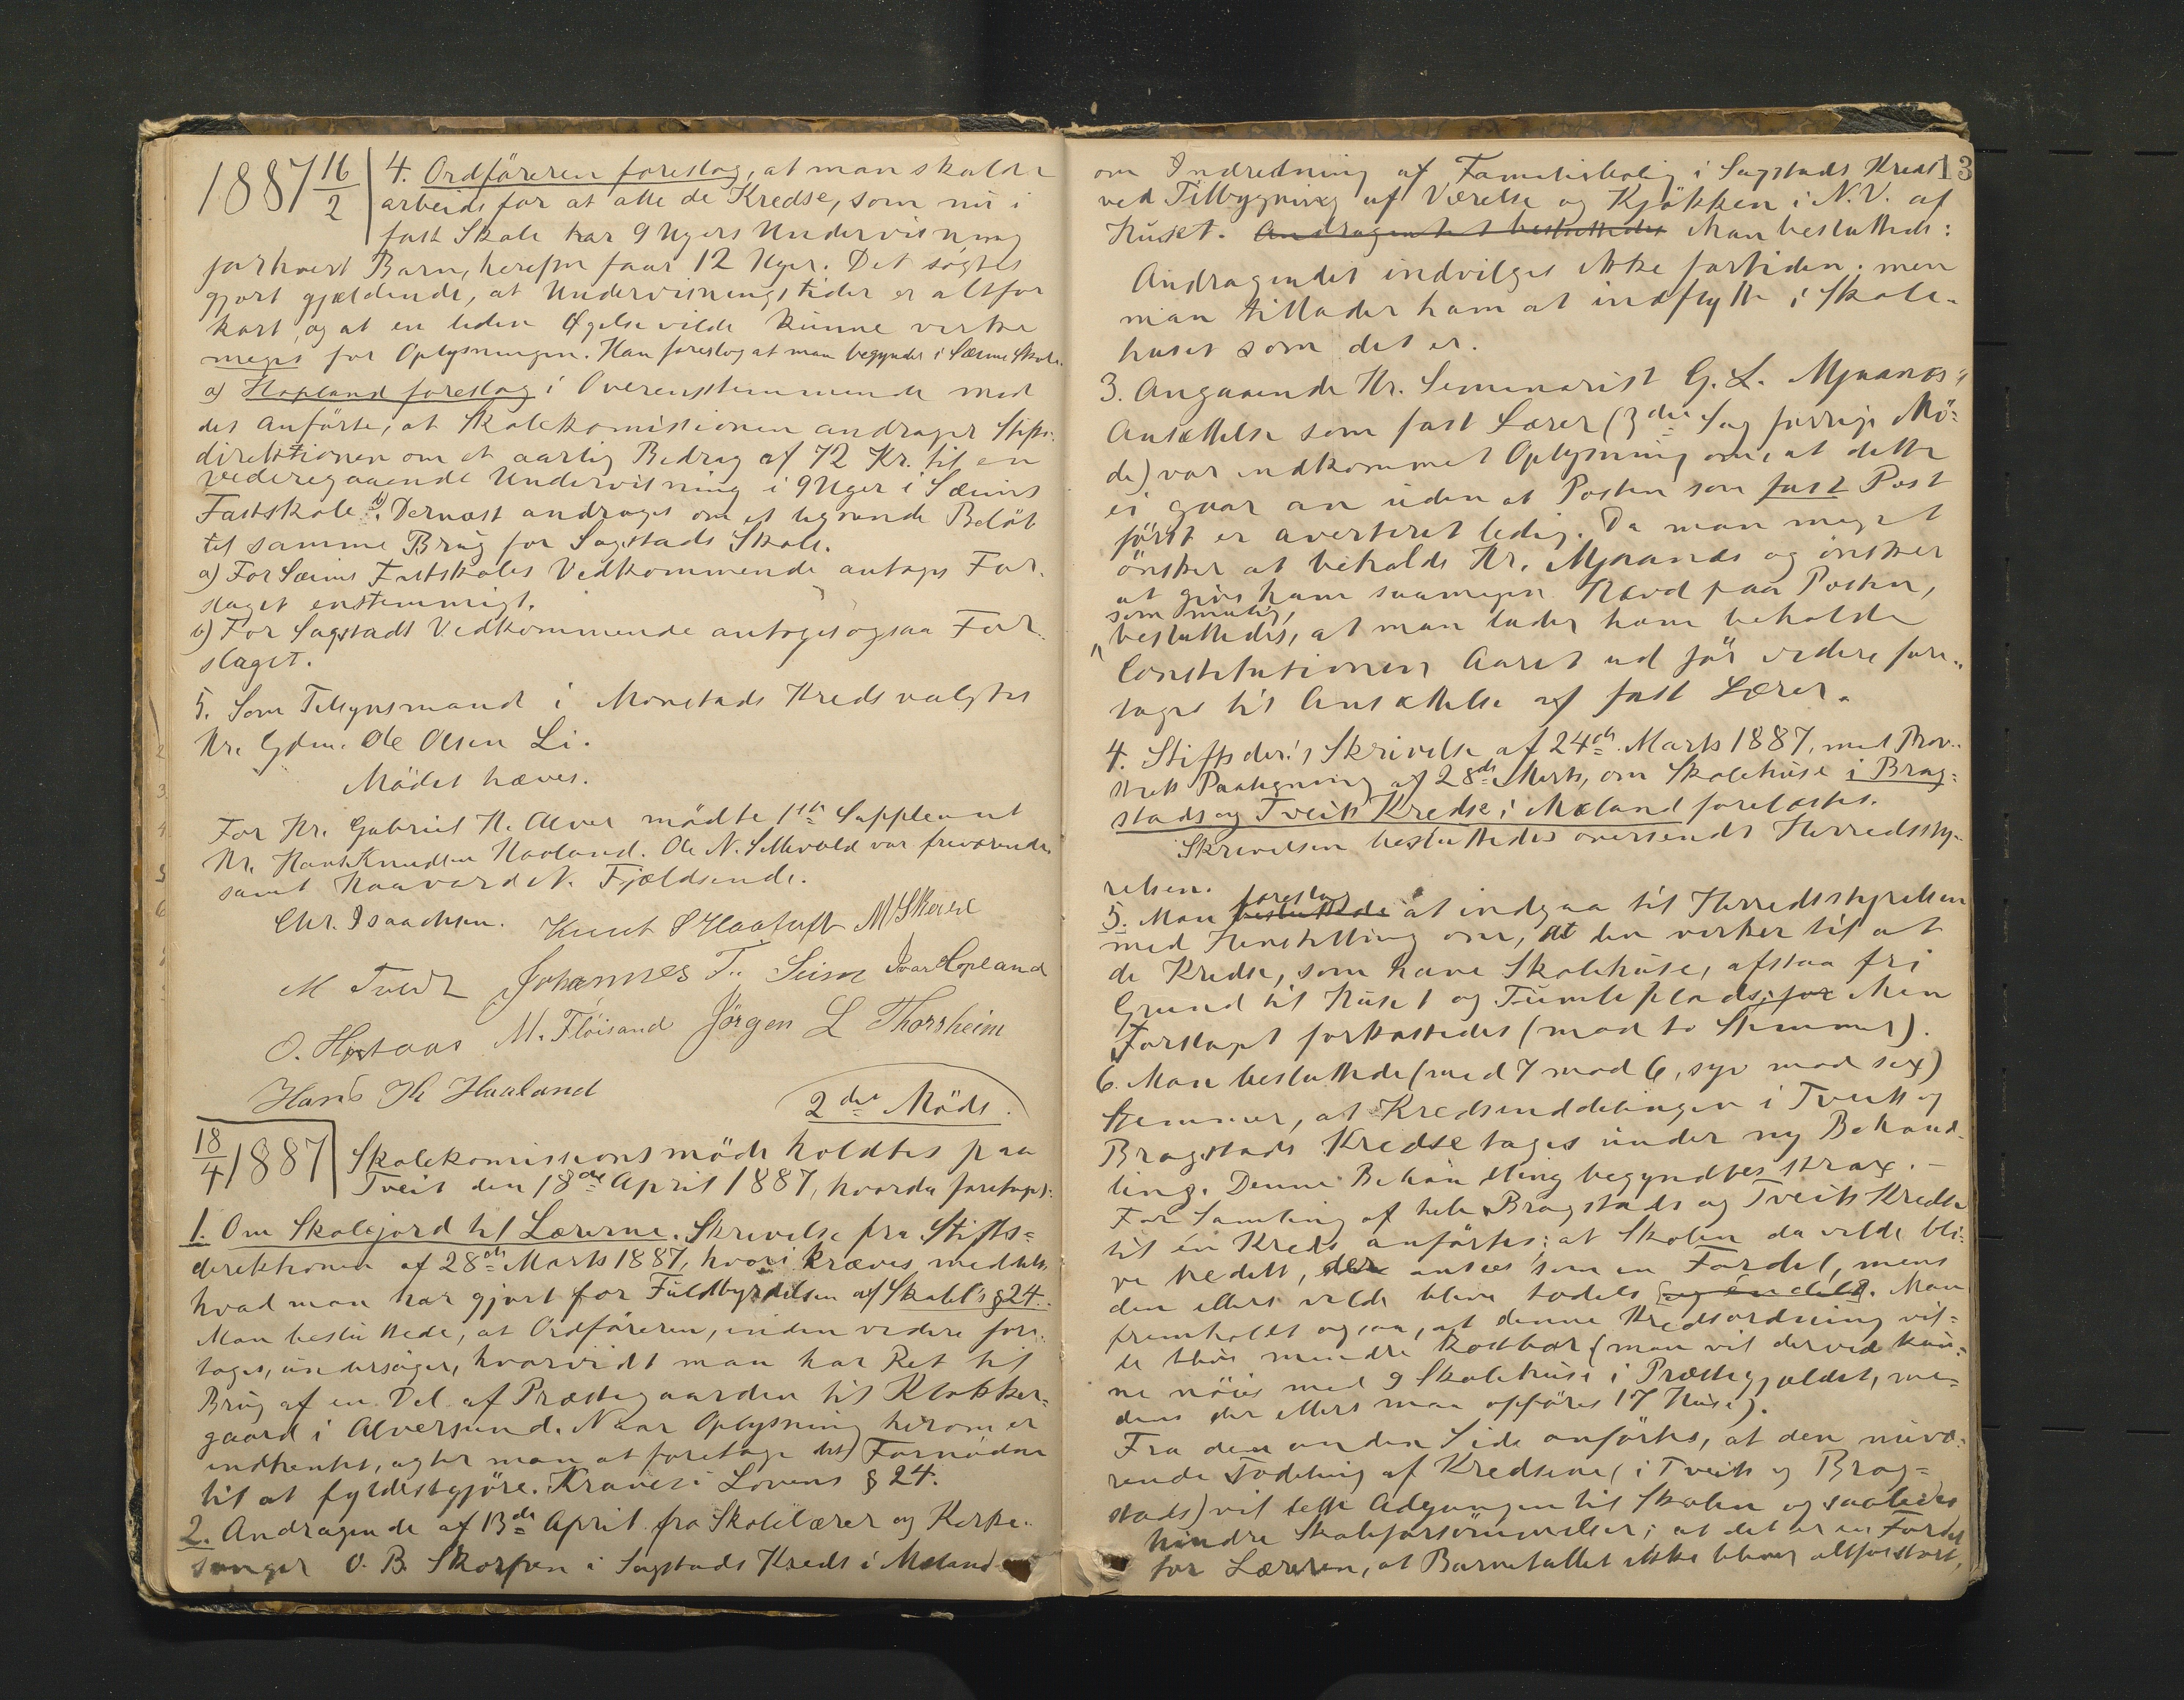 1887 16/2
4. Ordföreren foreslog, at man skulde
arbeide for at alle de Kredse, som nu i
fast Skole har 9 Ugers Undervisning
for hvert Barn, herefter faar 12 Uger. Det søgtes
gjort gjældende, at Undervisningstiden er altfor
kort, og at en liden Øgelse vilde kunne virke
meget for Oplysningen. Han foreslog at man begynder i Sæims Skole.
a) Hopland foreslog i Overensstemmende med
det Anförte, at Skolekomissionen andrager Stifts-
direktionen om et aarlig Bedrag af 72 Kr. til en
vederegaaende Undervisning i 9 Uger i Sæims
Fastskole. b) Dernæst andrages om et lignende Belöb
til samme Brug for Sagstads Skole.
a) For Sæims Fastskoles Vedkommende antoges For-
slaget enstemmigt.
b) For Sagstads Vedkommende antoges ogsaa For-
slaget.
5. Som Tilsynsmand i Monstads Kreds valgtes
Hr. Gdm. Ole Olsen Li.
Mödet hæves.
For Hr. Gabriel N. Alver mödte 1ste Suppleant
Hr. Hans Knudsen Haaland. Ole N. var fraværende
samt Haavard N. Fjeldsende.
Chr. Isaachsen. Knut O Haatuft M Skeie
M Tveit Johannes T. Seim Ivar Hopland
O. Hjertaas M. Flöisand Jörgen L Thorsheim
Hans K Haaland
2det Möde.
18/4 1887
Skolekomissionsmöde holdtes paa
Tveit den 18de April 1887, hvorda foretoges:
1. Om Skolejord til Lærerne. Skrivelse fra Stifts-
direktionen af 28de Marts 1887, hvori kræves meddelt,
hvad man har gjort for Fuldbyrdelsen af Skolel's § 24.
Man besluttede, at Ordföreren, inden videre fore-
tages, undersöger, hvorvidt man har Ret til
Brug af en Del af Præstegaarden til Klokker-
gaard i Alversund. Naar Oplysning herom er
indhentet, agter man at foretage det Fornödne
til at fyldestgjöre Kravet i Lovens § 24.
2. Andragende af 13de April fra Skolelærer og Kirke-
sanger O. B. Skorpen i Sagstads Kreds i Mæland
13
om Indredning af Familiebolig i Sagstads Kreds
ved Tilbygning af Værelse og Kjökken i N.V. af
Huset. Andragendet besluttedes Man besluttede:
Andragendet indvilges ikke fortiden; men
man tillader ham at indflytte i Skole-
huset som det er.
3. Angaaende Hr. Seminarist G. L. Mjaanes's
Ansættelse som fast Lærer (3die Sag forrige Mö-
de) var indkommet Oplysning om, at dette
ei gaar an uden at Posten som fast Post
först er averteret ledig. Da man meget
önsker at beholde Hr. Mjaanes og önsker
at give ham saamegen Hævd paa Posten,
som mulig,
besluttedes, at man lader ham beholde
Constitutionen Aaret ud för videre fore-
tages til Ansættelse af fast Lærer.
4. Stiftsdir.'s Skrivelse af 24de Marts 1887, med Prov-
stiets Paategning af 28de Marts, om Skolehuse i Brag-
stads og Tveits Kredse i Mæland forelæstes.
Skrivelsen besluttedes oversendt Herredssty-
relsen.
foreslog
5. Man besluttede at indgaa til Herredsstyrelsen
med Henstilling om, at den virker til at
de Kredse, som have Skolehuse, afstaa fri
Grund til Huset og Tumleplads; for Men
Forslaget forkastedes (mod to Stemmer).
6. Man besluttede (med 7 mod 6, syv mod sex)
Stemmer, at Kredsinddelingen i Tveits og
Bragstads Kredse tages under ny Behand-
ling. Denne Behandling begyndtes strax. –
For Samling af hele Bragstads og Tveits Kredse
til én Kreds anförtes: at Skolen da vilde bli-
ve tredelt, der ansees som en Fordel, mens
den ellers vilde blive todels og éndels. Man
fremholdt ogsaa, at denne Kredsordning vil-
de blive mindre kostbar (man vil derved kun-
ne nöies med 9 Skolehuse i Præstegjældet, me-
dens der ellers maa opföres 17 Huse).
Fra den anden Side anförtes, at den nuvæ-
rende Todeling af Kredsene (i Tveits og Brag-
stads) vil lette Adgangen til Skolen og saaledes
hindre Skoleforsömmelser; at det er en Fordel
for Læreren, at Barnetallet ikke bliver altforstort,